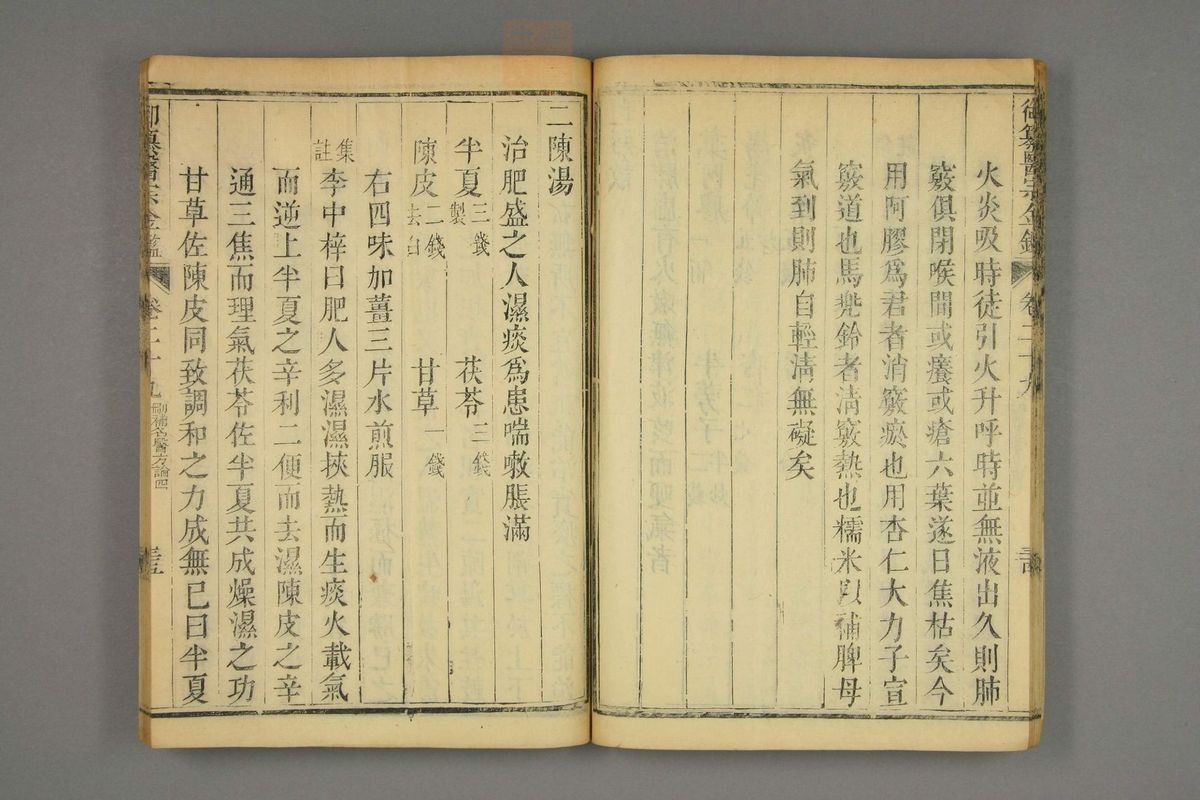 御纂醫宗金鑑 卷二十九
火炎吸時徒引火升呼時並無液出久則肺
竅俱閉喉間或癢或瘡六葉遂日焦枯矣今
用阿膠爲君者消竅瘀也用杏仁大力子宣
竅道也馬兠鈴者淸竅熱也糯米以補脾母
氣到則肺自輕淸無礙矣
二陳湯
治肥盛之人濕痰爲患喘嗽脹滿
半夏三錢製 茯苓三錢
陳皮二錢去白 甘草一錢
右四味加薑三片水煎服
集註李中梓曰肥人多濕濕挾熱而生痰火載氣
而逆上半夏之辛利二便而去濕陳皮之辛
通三焦而理氣茯苓佐半夏共成燥濕之功
甘草佐陳皮同致調和之力成無已曰半夏
御纂醫宗金鑑 卷二十九 刪補名醫方論四